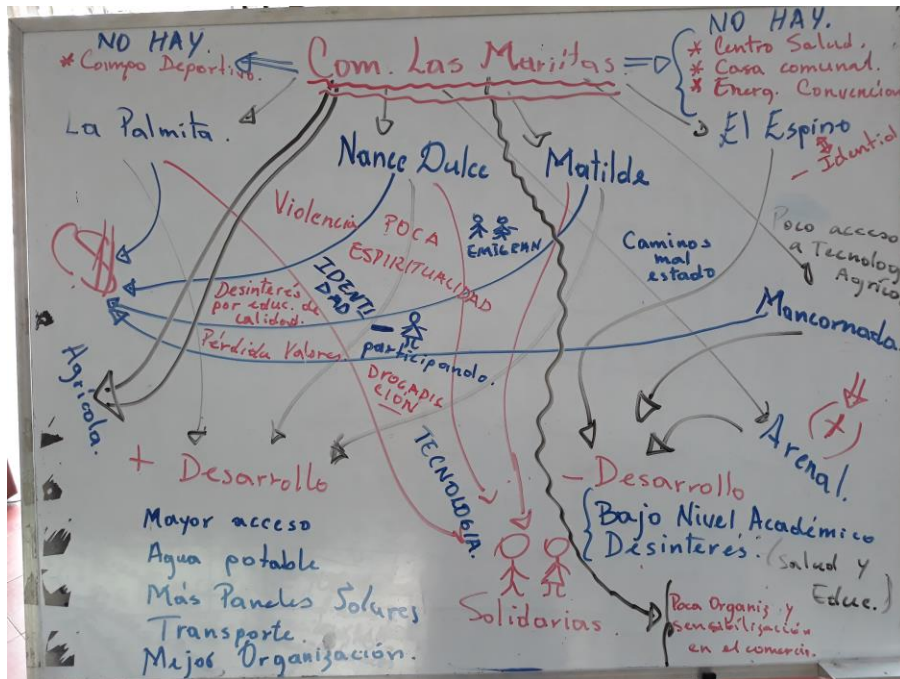 NO HAY.
* Campo Deportivo.
Com. Las Mariitas.
NO HAY.
* Centro Salud.
* Casa comunal.
* Energ. Convencion
La Palmita.
Nance Dulce
Matilde
El Espino
- Identid
$
Violencia
POCA
ESPIRITUALIDAD
EMIGRAN
Caminos
mal
estado
Poco acceso
a Tecnolog
Agríco
Desinterés
por educ. de
calidad.
IDENTI
DAD
-
participando.
Pérdida Valores
Mancornada
Agrícola.
DROGADIC
CIÓN
TECNOLOGIA.
Arenal.
(x)
+ Desarrollo
Mayor acceso
Agua potable
Más Paneles Solares
Transporte.
Mejor Organización.
Solidarias.
- Desarrollo
Bajo Nivel Académico
Desinterés: (Salud y
Educ.)
Poca Organiz y
sensibilización
en el comercio.